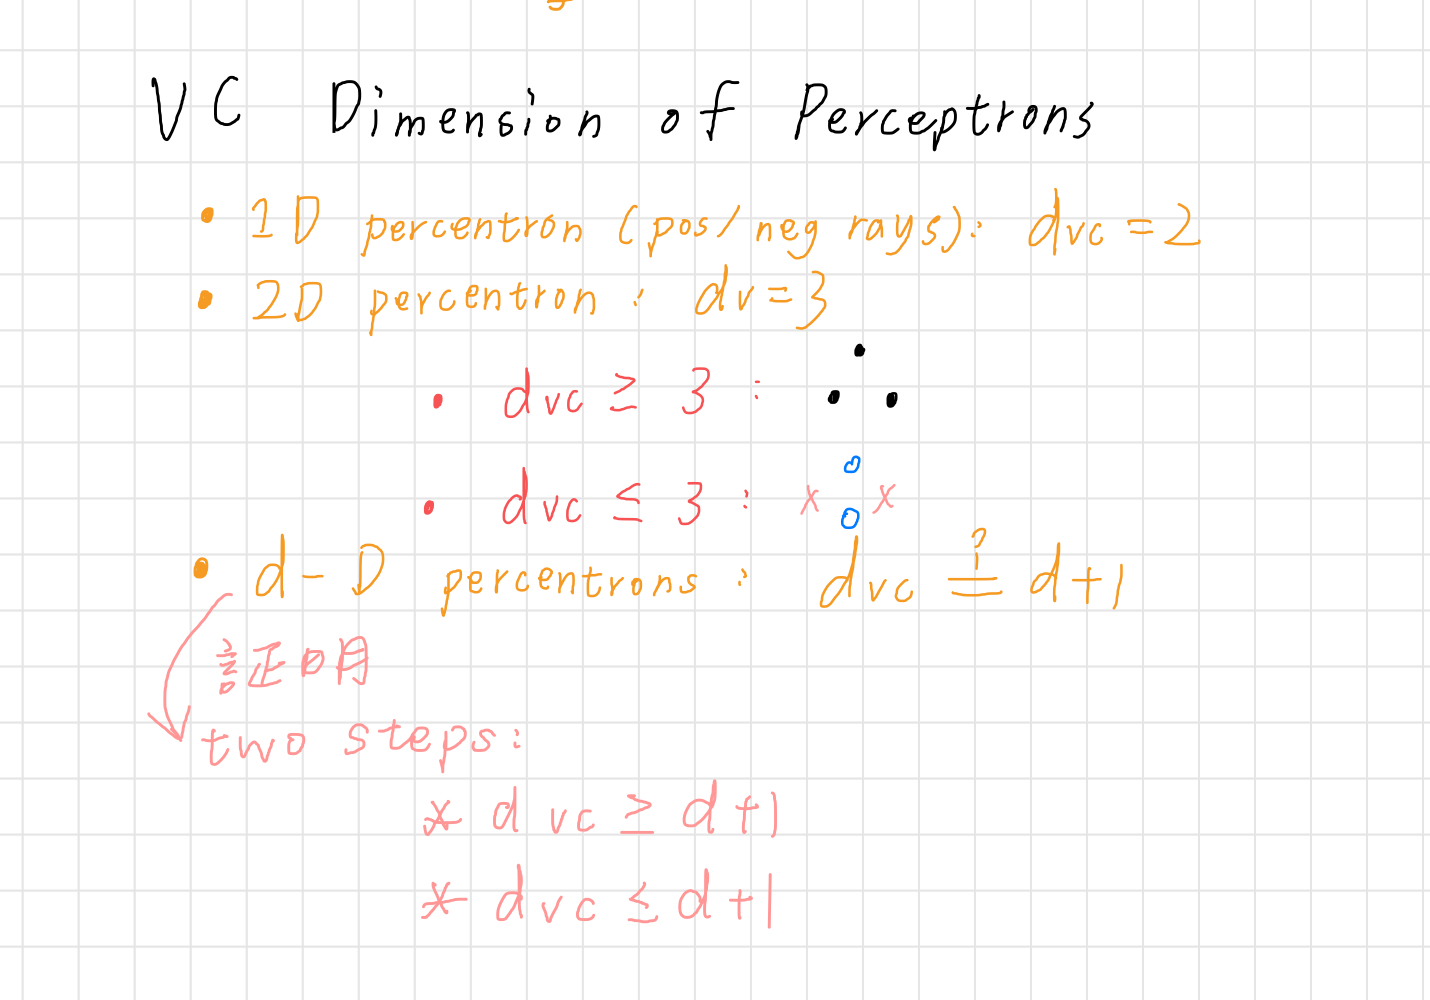 VC Dimension of Perceptrons
• 1D percentron (pos/neg rays): dvc = 2
• 2D percentron : dv = 3
• dvc ≥ 3 :
• dvc ≤ 3 : x o o x
• d-D percentrons : dvc ≟ d+1
証明
two steps:
* dvc ≥ d+1
* dvc ≤ d+1